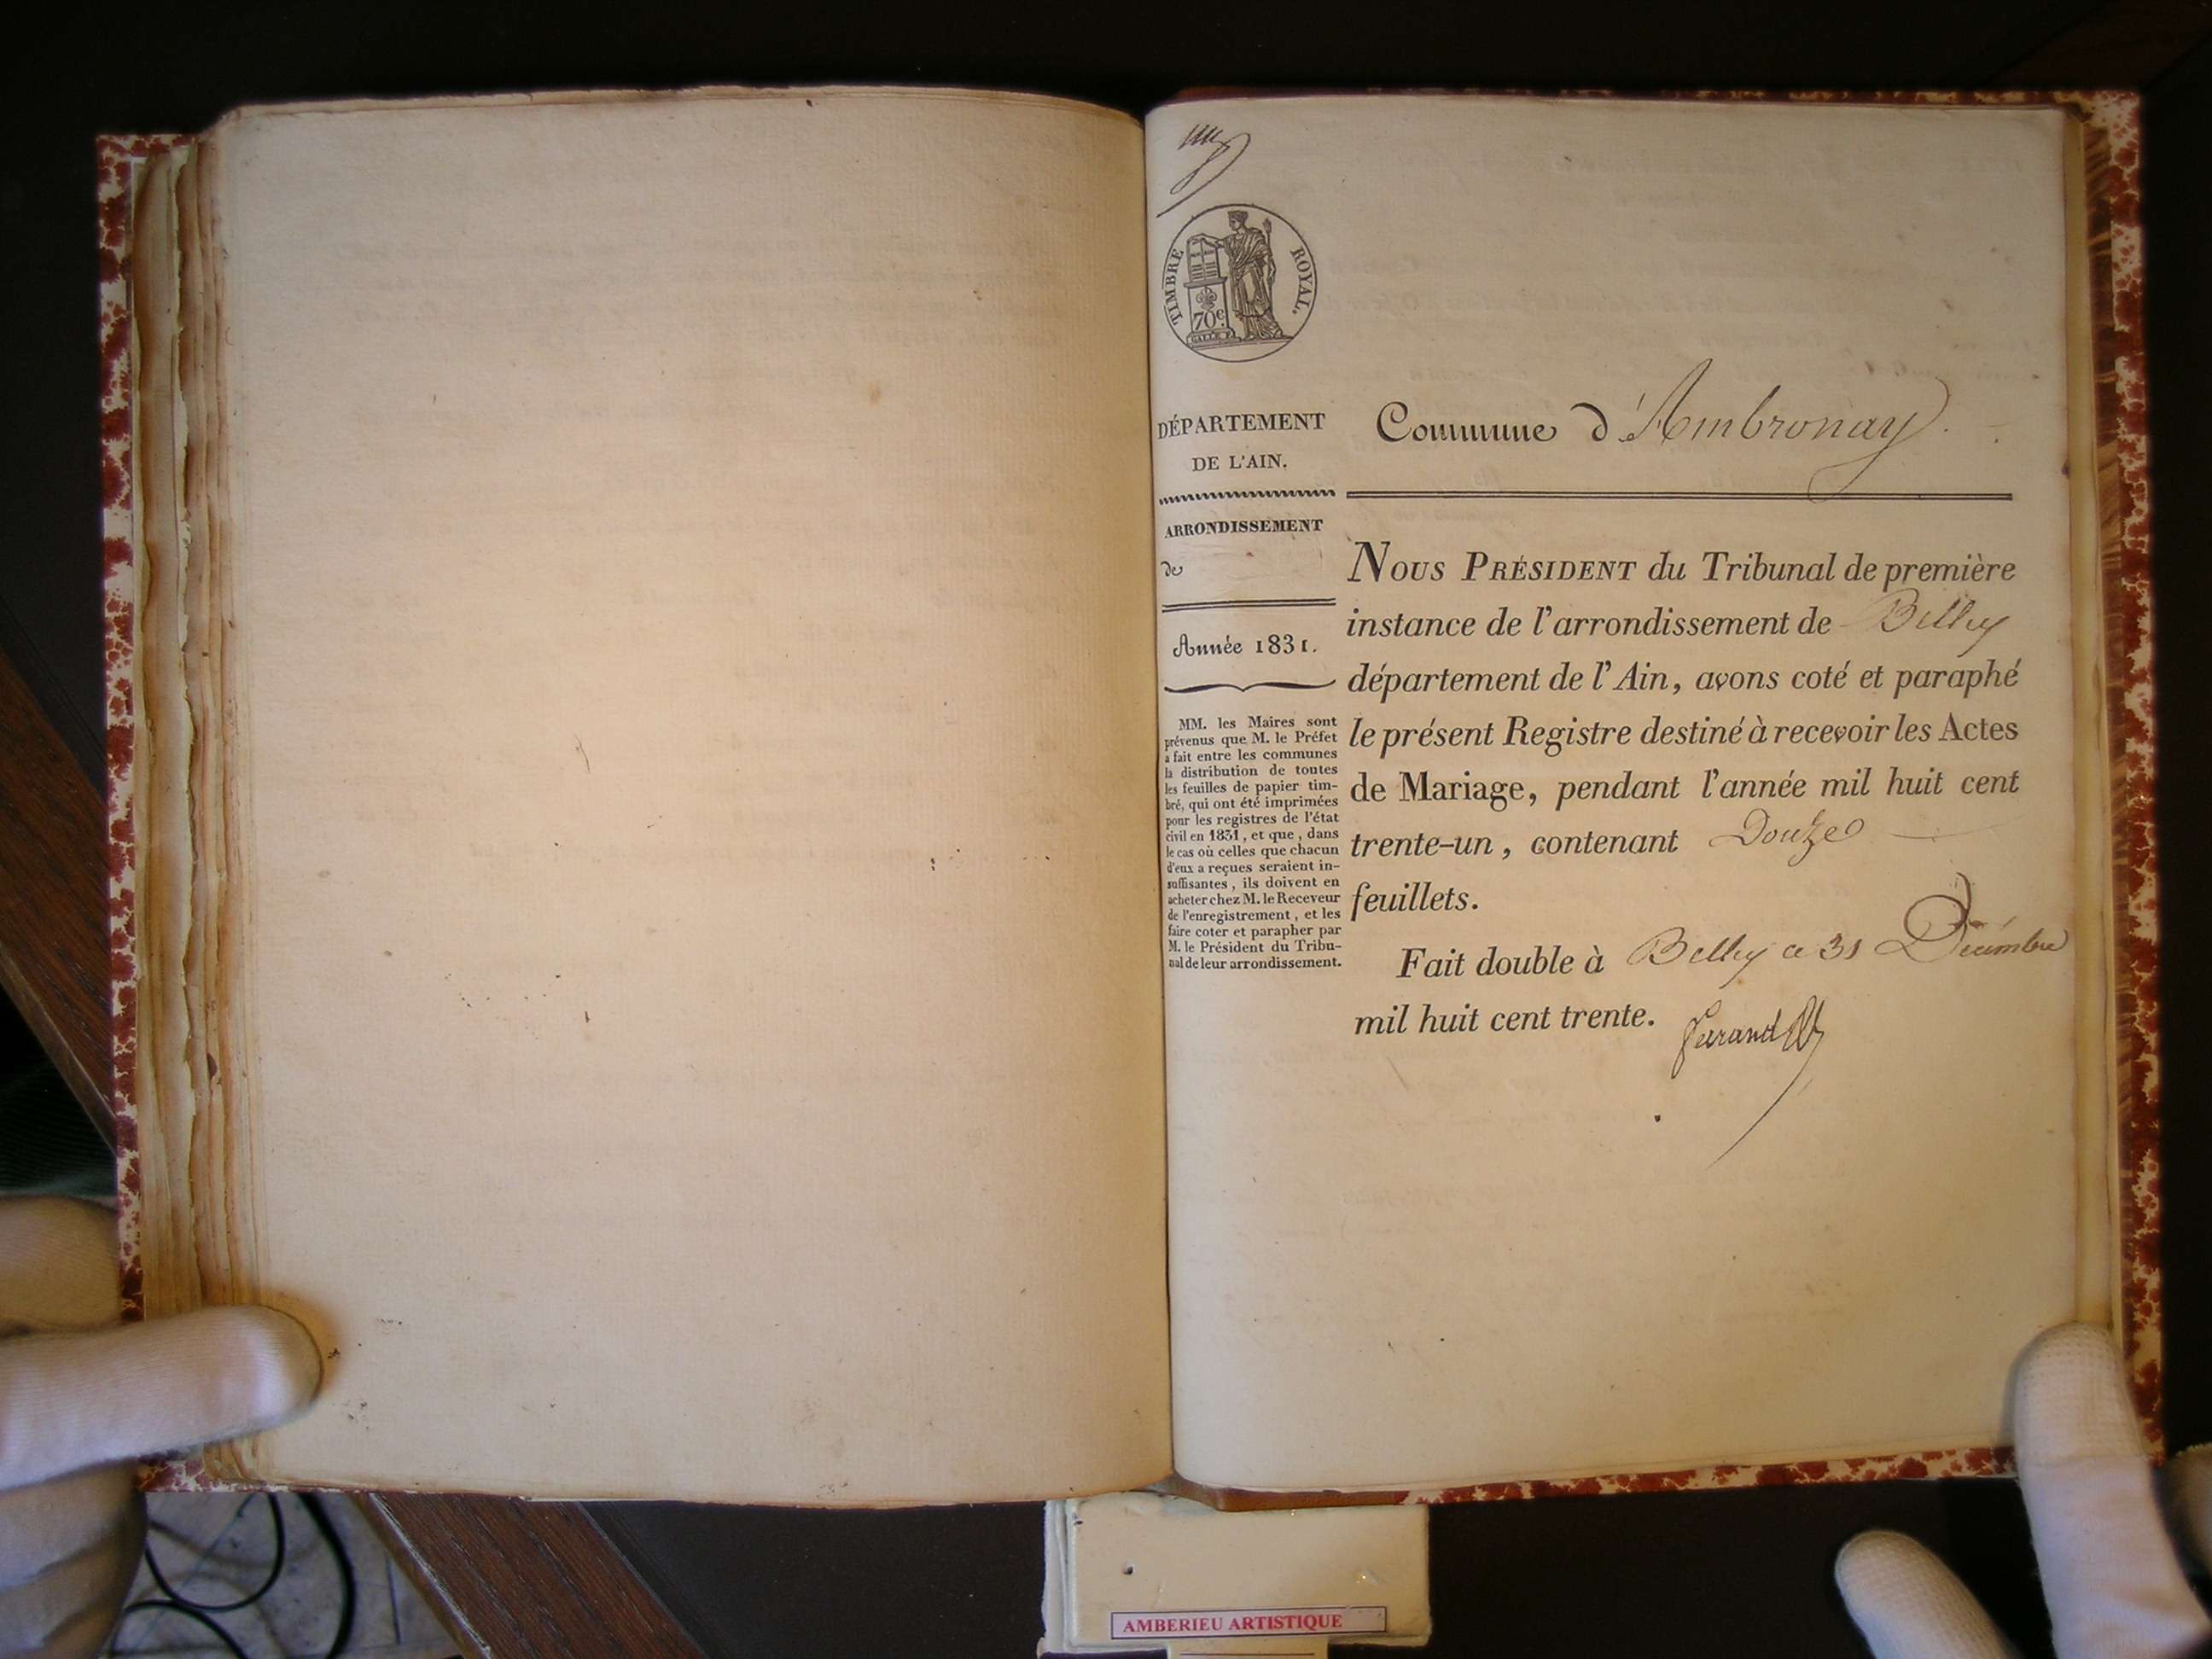 TIMBRE ROYAL.
70c.
GALLE F.
DÉPARTEMENT
DE L'AIN.
ARRONDISSEMENT
de
Année 1831.
MM. les Maires sont
prévenus que M. le Préfet
a fait entre les communes
la distribution de toutes
les feuilles de papier tim-
bré, qui ont été imprimées
pour les registres de l'état
civil en 1831, et que, dans
le cas où celles que chacun
d'eux a reçues seraient in-
suffisantes, ils doivent en
acheter chez M. le Receveur
de l'enregistrement, et les
faire coter et parapher par
M. le Président du Tribu-
nal de leur arrondissement.
Commune d'Ambronay
NOUS PRÉSIDENT du Tribunal de première
instance de l'arrondissement de Belley
département de l'Ain, avons coté et paraphé
le présent Registre destiné à recevoir les Actes
de Mariage, pendant l'année mil huit cent
trente-un, contenant Douze
feuillets.
Fait double à Belley ce 31 Décembre
mil huit cent trente.
AMBERIEU ARTISTIQUE